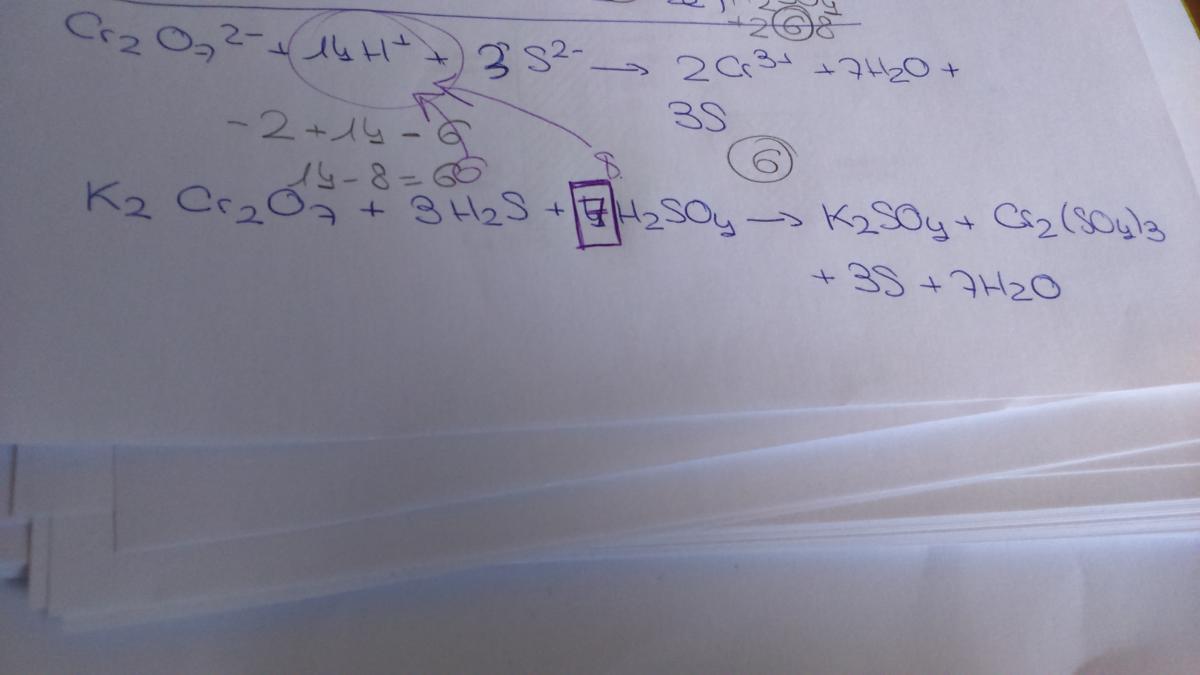 +2 6 8
Cr2O7 2- + 14H+ + 3S2- → 2Cr3+ + 7H2O +
3S
-2+14-6
14-8=6
6
8
6
K2Cr2O7 + 3H2S + H2SO4 → K2SO4 + Cr2(SO4)3
+ 3S + 7H2O